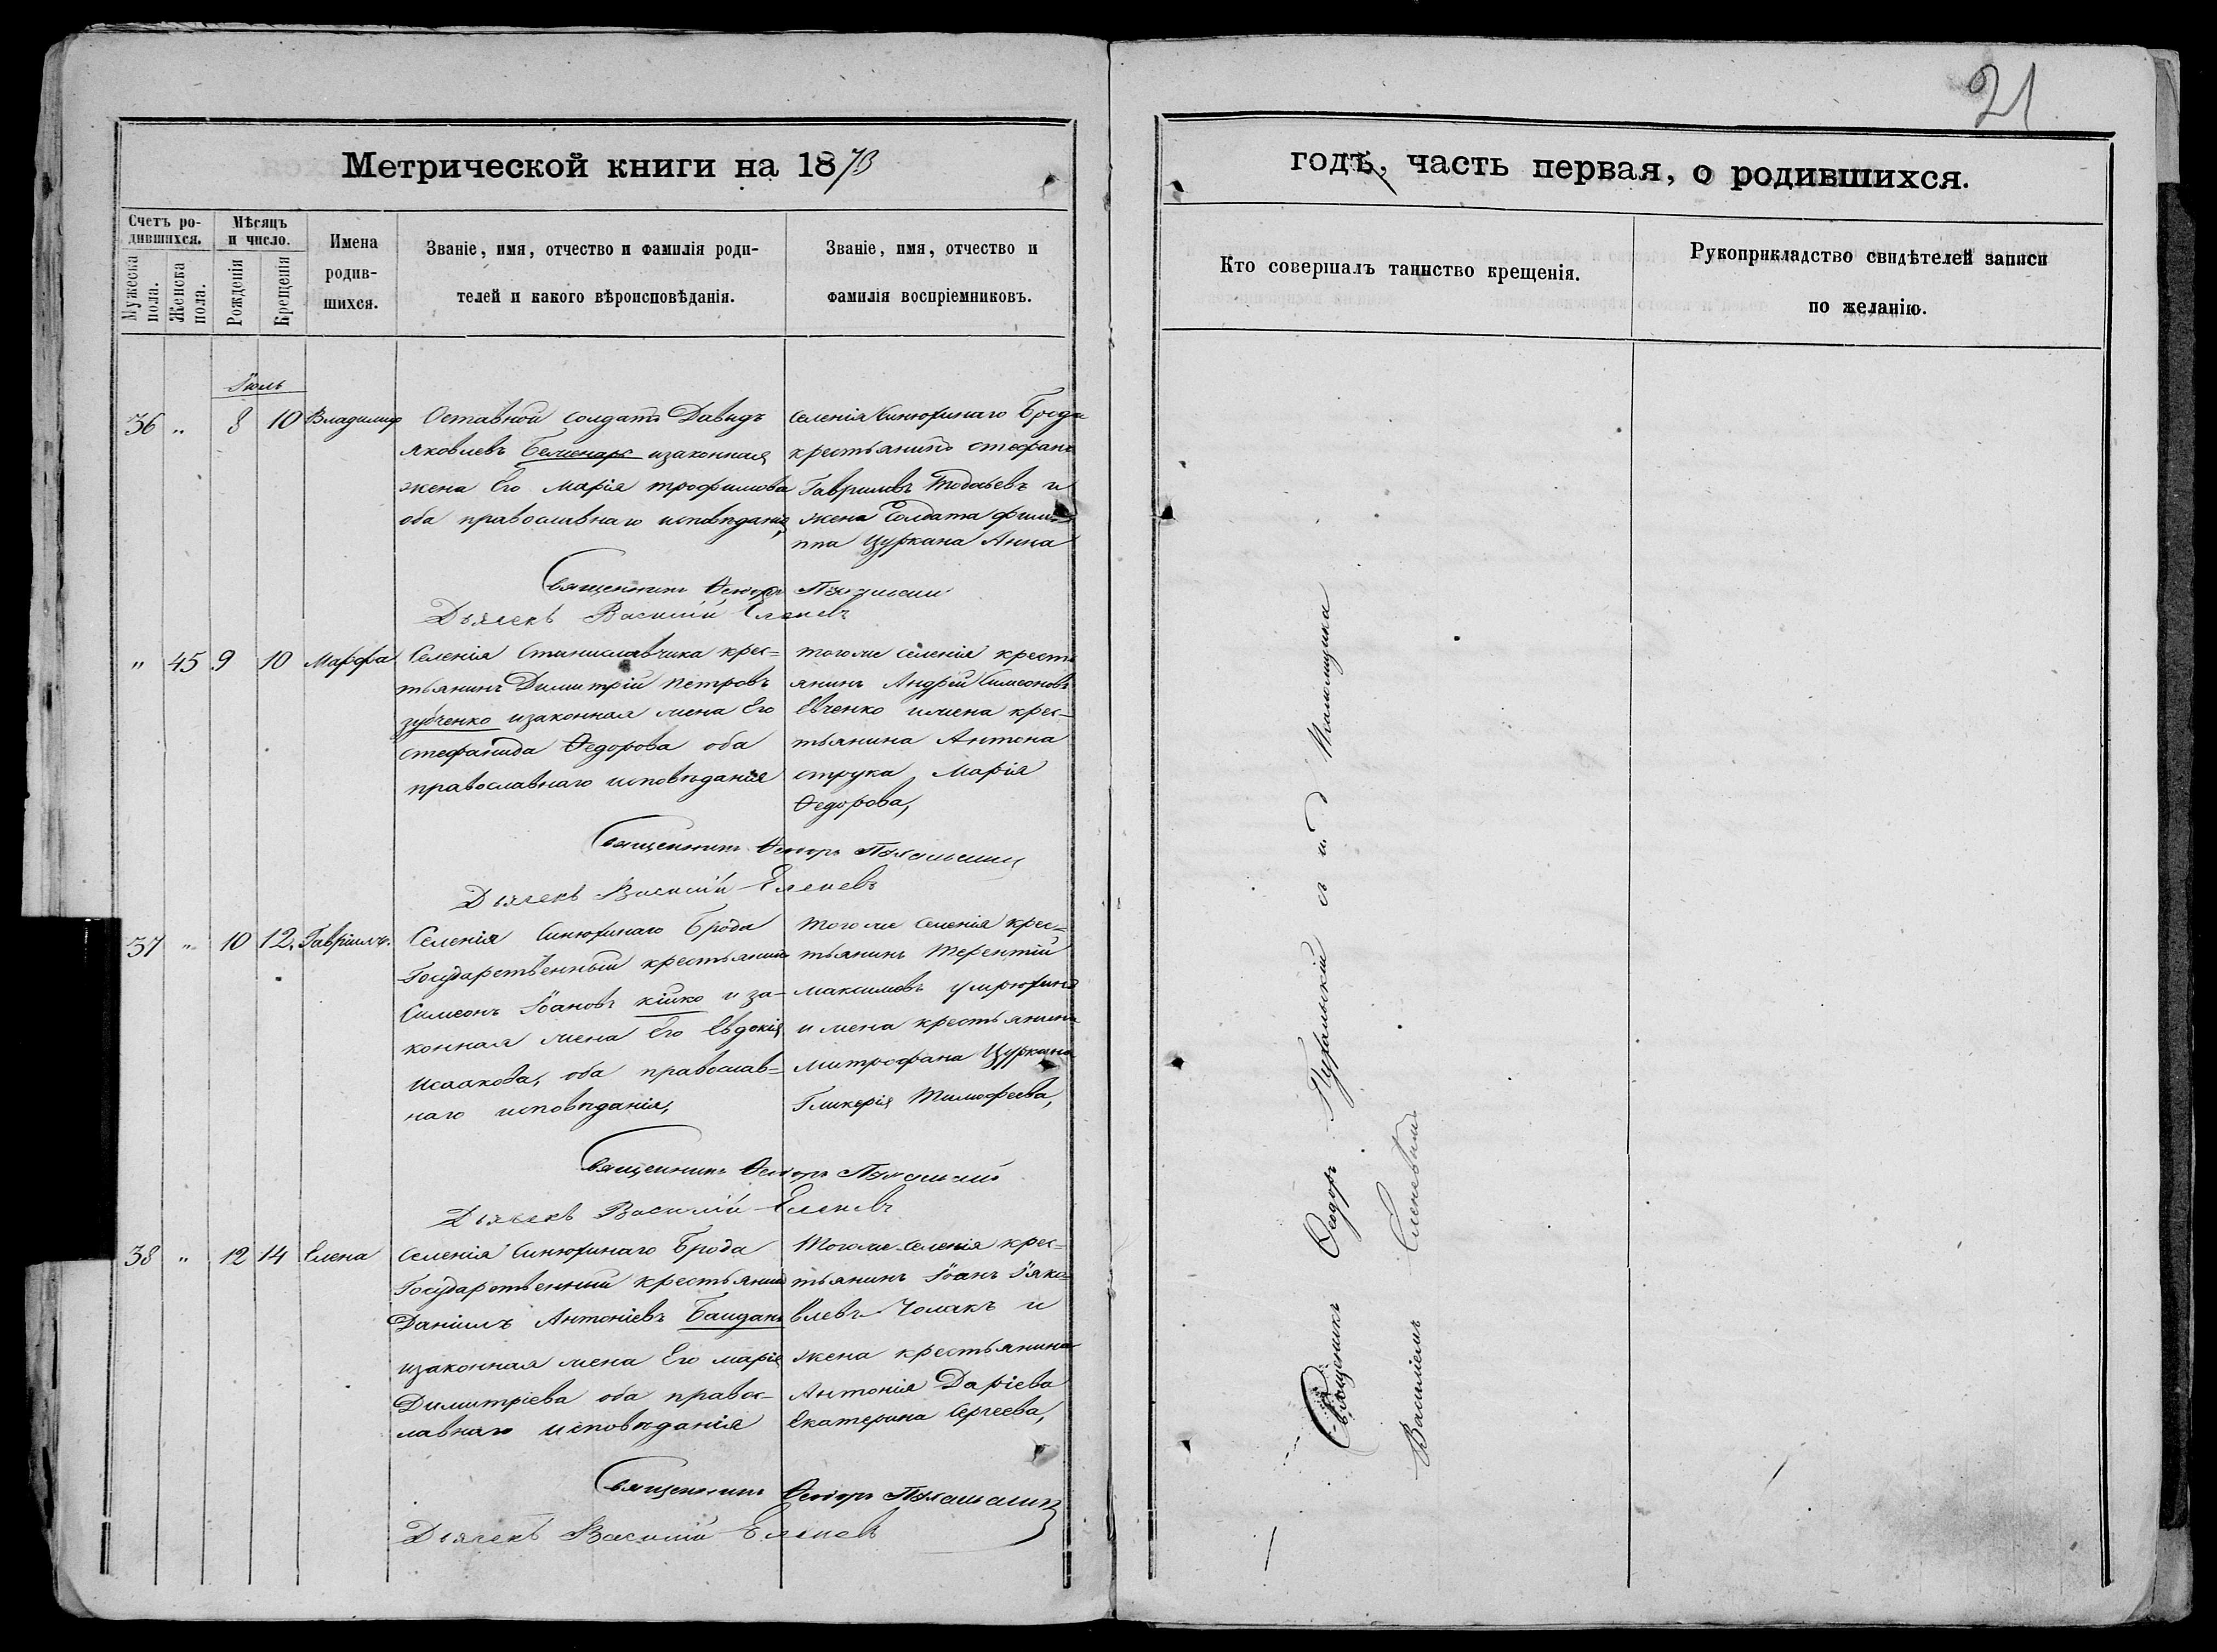 21
Метрической книги на 1873
годъ, часть первая, о родившихся.
Счетъ ро-
дившихся.
Мужеска пола.
Женска пола.
Мѣсяцъ
и число.
Рожденія
Крещенія
Имена
родив-
шихся.
Званіе, имя, отчество и фамилія роди-
телей и какого вѣроисповѣданія.
Званіе, имя, отчество и
фамилія воспріемниковъ.
Кто совершалъ таинство крещенія.
Рукоприкладство свидѣтелей записи
по желанію.
Іюль
36 " 8 10 Владимир
Оставной солдатъ Давидъ
Яковлевъ изаконная
жена Его Марія трофимова
оба православнаго исповѣданія,
Селенія Синюхинаго Брода
крестьянинъ стефанъ
Гавриловъ и
жена Солдата фили-
ппа Цуркана Анна
Священникъ Ѳеодоръ
Дьячекъ Василій Еленевъ
" 45 9 10 Марфа
Селенія Станиславчика крес=
тьянинъ Димитрій Петровъ
зубченко изаконная жена Его
стефанида Ѳедорова оба
православнаго исповѣданія
тогоже селенія кресть
янинъ Андрій Симеоновъ
Евченко ижена крес=
тьянина Антона
струка Марія
Ѳедорова,
Священникъ Ѳеодоръ
Дьячекъ Василій Еленевъ
37 " 10 12. Гавріилъ.
Селенія Синюхинаго Брода
Государственный крестьянинъ
Симеонъ Іоановъ кійко и за-
конная жена Его Евдокія
Исаакова, оба православ=
наго исповѣданія,
Тогоже Селенія крес=
тьянинъ Терентій
максимовъ умрюхинъ
и жена крестьянина
Митрофана Цуркана
Гликерія Тимофеева,
Священникъ Ѳеодоръ
Дьячекъ Василій Еленевъ
38 " 12 14 Елена
Селенія Синюхинаго Брода
Государственный крестьянинъ
Даніилъ Антоніевъ Банданъ
изаконная жена Его марія
Димитріева оба правос-
лавнаго исповѣданія
Тогоже Селенія крес=
тьянинъ Іоанъ Іяко=
влевъ Чомакъ и
жена крестьянина
Антонія Даріева
Екатерина Сергеева,
Священникъ Ѳеодоръ
Дьячекъ Василій Еленевъ
Священикъ Ѳеодоръ Пухальскій съ
Василіемъ Еленевымъ